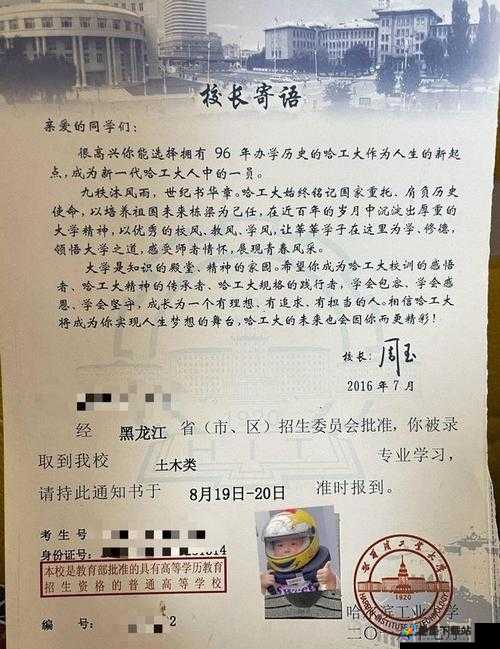 校长寄语
亲爱的同学们：
很高兴你能选择拥有 96 年办学历史的哈工大作为人生的新起
点，成为新一代哈工大人中的一员。
九秩沐风雨，世纪书华章。哈工大始终铭记国家重托、肩负历史
使命，以培养祖国未来栋梁为己任，在近百年的岁月中沉淀出厚重的
大学精神，以优秀的校风、教风、学风，让莘莘学子在这里为学、修德，
领悟大学之道，感受师者情怀，展现青春风采。
大学是知识的殿堂、精神的家园。希望你成为哈工大校训的感悟
者、哈工大精神的传承者、哈工大规格的践行者，学会包容、学会感
恩、学会坚守，成长为一个有理想、有追求、有担当的人。相信哈工大
将成为你实现人生梦想的舞台，哈工大的未来也会因你而更精彩！
校长：周玉
2016 年 7 月
经 黑龙江 省（市、区）招生委员会批准，你被录
取到我校 土木类 专业学习，
请持此通知书于 8月19日-20日 准时报到。
考生号
身份证号：
本校是教育部批准的具有高等学历教育
招生资格的普通高等学校
编号： 2
哈尔滨工业大学
HARBIN INSTITUTE OF TECHNOLOGY
1920
哈 滨工业 学
二〇 年七月
下载站